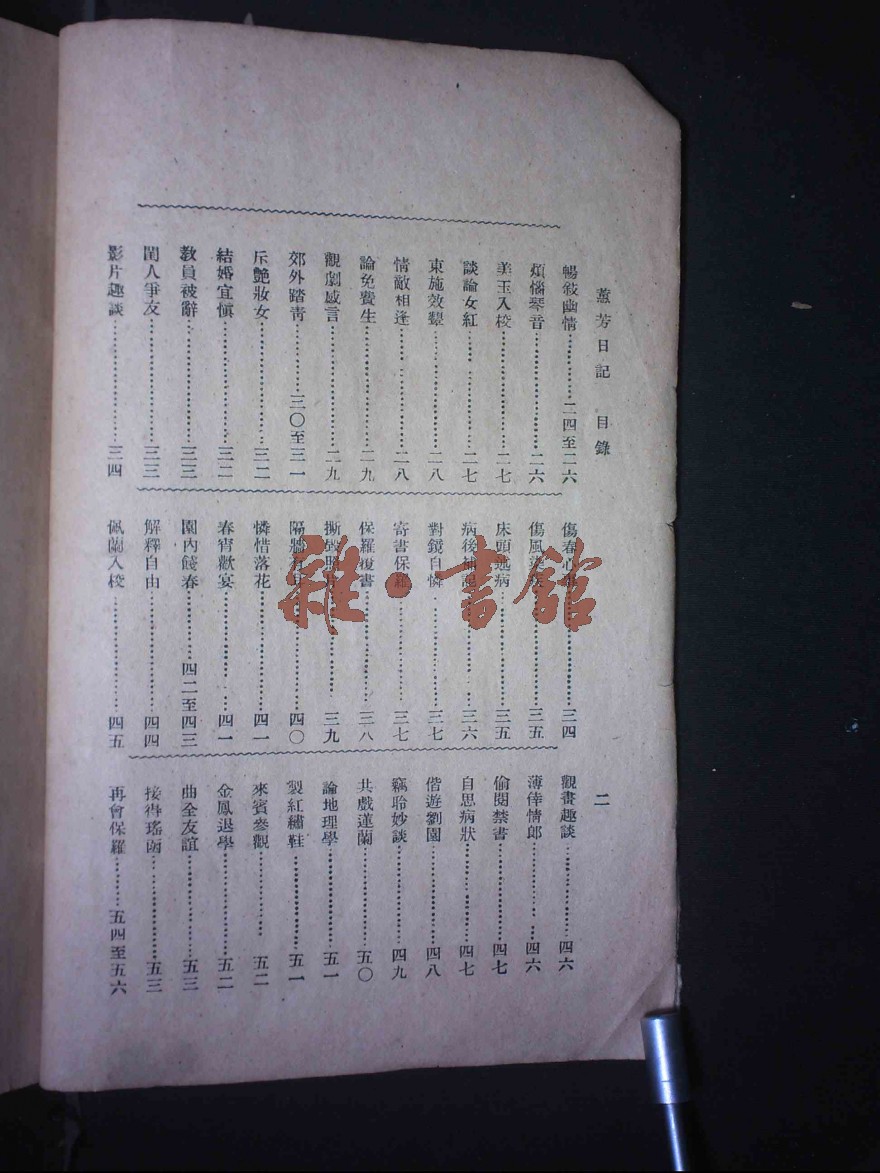 薰芳日記　目錄
二
暢敍幽情…………二四至二六
煩惱琴音…………二六
美玉入校…………二七
談論女紅…………二七
東施效顰…………二八
情敵相逢…………二八
論免費生…………二九
觀劇感言…………二九
郊外踏靑…………三〇至三一
斥艶妝女…………三二
結婚宜愼…………三二
敎員被辭…………三三
閨人爭友…………三三
影片趣談…………三四
傷春心…………三四
傷風…………三五
床頭…病…………三五
病後補記…………三六
對鏡自憐…………三七
寄書保羅…………三七
保羅復書…………三八
撕毀照片…………三九
隔牆有…………四〇
憐惜落花…………四一
春宵歡宴…………四一
園內餞春…………四二至四三
解釋自由…………四四
佩蘭入校…………四五
觀畫趣談…………四六
薄倖情郎…………四六
偷閱禁書…………四七
自思病狀…………四七
偕遊劉園…………四八
竊聆妙談…………四九
共戲蓮蘭…………五〇
論地理學…………五一
製紅繡鞋…………五一
來賓參觀…………五二
金鳳退學…………五二
曲全友誼…………五三
接得瑤函…………五三
再會保羅…………五四至五六
雜·書舘